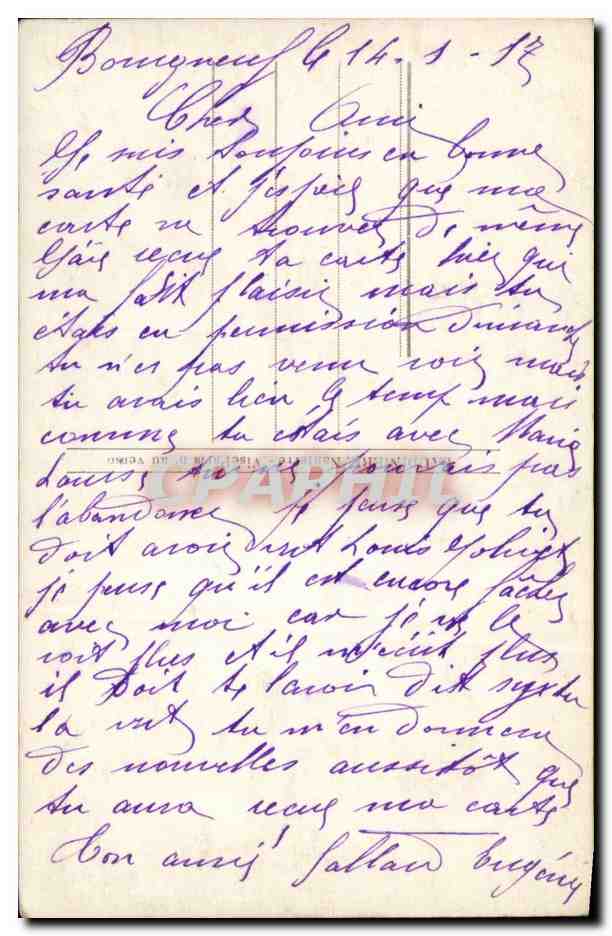 Bourgneuf le 14-1-17
Cher Ami
Je suis toujours en bonne
santé et j'espère que ma
carte te trouvera de même
J'ais recue ta carte hier qui
ma fait plaisir mais tu
étais en permission Dimanche
tu n'es pas venu voir mais
tu avais bien le temp mais
comme tu étais avec Marie
Louise tu ne pouvais pas
l'abandonner Je pense que tu
doit avoir vut Louis
je pense qu'il est encore fâcher
avec moi car je ne le
voit plus et il m'écrit plus
il doit te l'avoir dit si tu
la vut tu m'en donnera
des nouvelles aussitôt que
tu aura recue ma carte
Ton amie Galland Eugénie
CPAPHIL